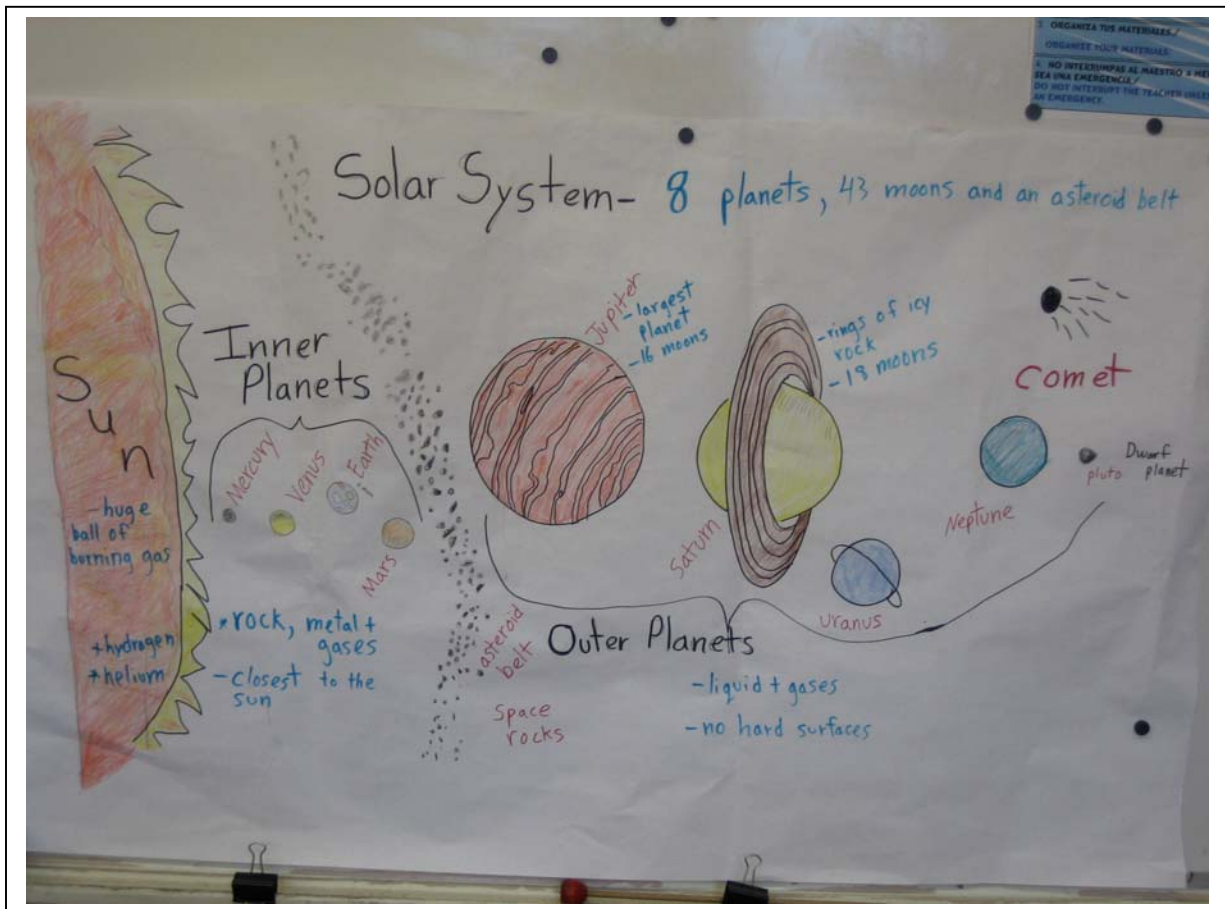 3. ORGANIZA TUS MATERIALES./
ORGANIZE YOUR MATERIALS.
4. NO INTERRUMPAS AL MAESTRO A
SEA UNA EMERGENCIA./
DO NOT INTERRUPT THE TEACHER UNLES
AN EMERGENCY.
Solar System- 8 planets, 43 moons and an asteroid belt
Sun
-huge
ball of
burning gas
*hydrogen
*helium
Inner
Planets
Mercury
Venus
Earth
Mars
*rock, metal +
gases
-closest to the
sun
asteroid
belt
Space
rocks
Jupiter
-largest
planet
-16 moons
Saturn
-rings of icy
rock
-18 moons
Uranus
Neptune
Comet
pluto
Dwarf
planet
Outer Planets
-liquid + gases
-no hard surfaces